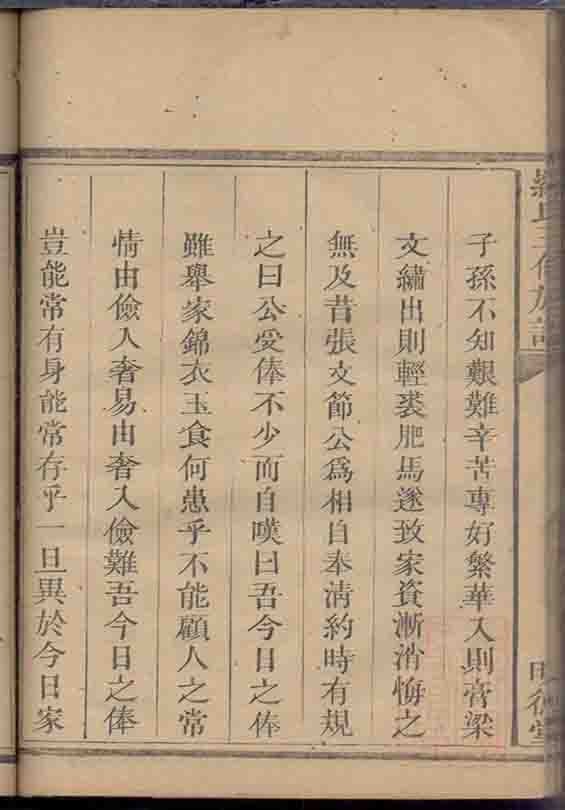 子孫不知艱難辛苦專好繁華入則膏梁
文繡出則輕裘肥馬遂致家資漸消悔之
無及昔張文節公爲相自奉清約時有規
之曰公受俸不少而自嘆曰吾今日之俸
雖舉家錦衣玉食何患乎不能顧人之常
情由儉入奢易由奢入儉難吾今日之俸
豈能常有身能常存乎一旦異於今日家